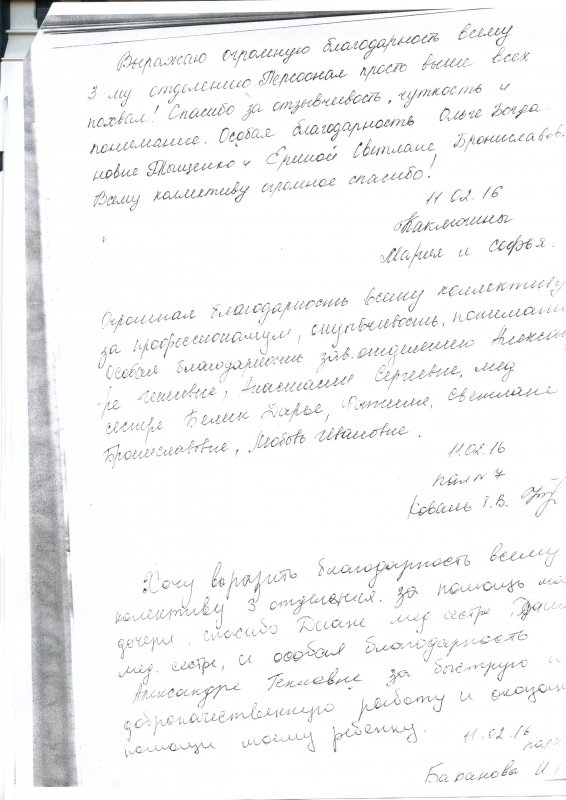 Выражаю огромную благодарность всему
3 му отделению. Персонал просто выше всех
похвал! Спасибо за отзывчивость, чуткость и
понимание. Особая благодарность Ольге Богда-
новне Тыщенко и Ершой Светлане Брониславов
Всему коллективу огромное спасибо!
11 02.16
Мария и Софья.
Огромная благодарность всему коллективу
за профессионализм, отзывчивость, понимани
Особая благодарность зав. отделению Алексан
-ре Гениевне, Анастасии Сергеевне, мед
сестре Белик Дарье, Светлане
Брониславовне, Любовь Ивановне.
11.02.16
пал № 7
Коваль Т.В.
Хочу выразить благодарность всему
колективу 3 отделения за помощь мо
дочери. спасибо Диане мед сестре, Даши
мед. сестре, и особая благодарность
Александре Гениовне за быструю и
доброкачественную работу и оказан
помощи моему ребенку.
11.02.16
пал
Баранова И